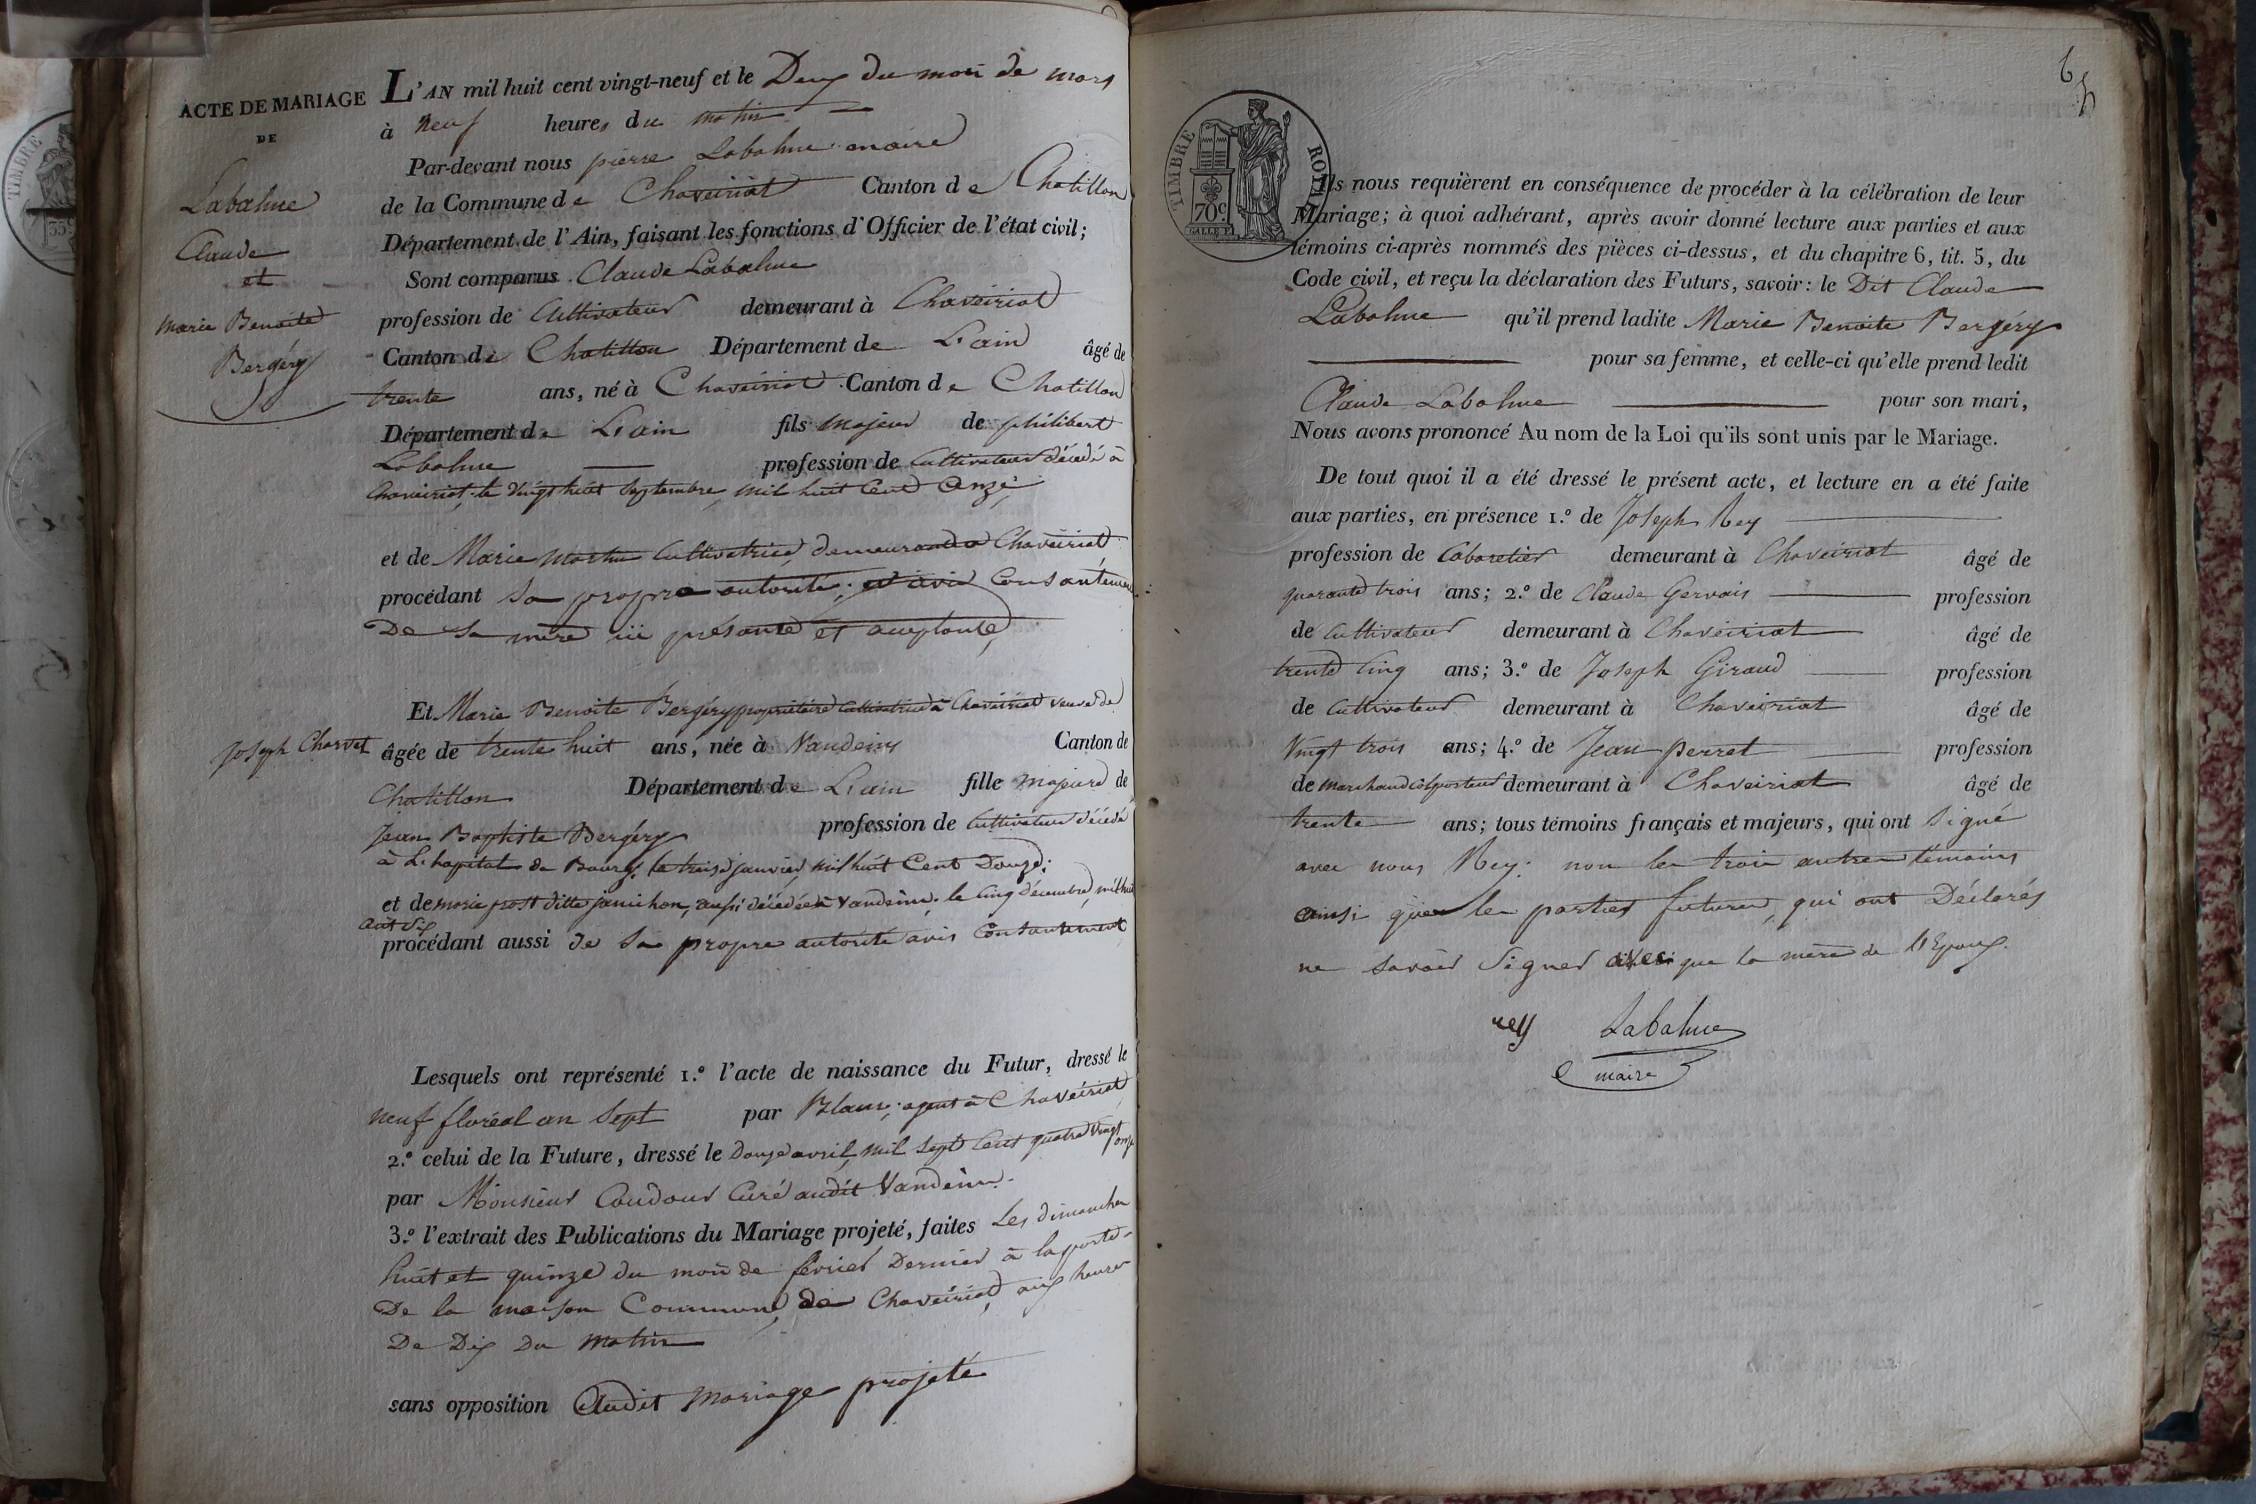 ACTE DE MARIAGE
DE
Labalme
Claude
et
Marie Benoite
Bergéry
L'AN mil huit cent vingt-neuf et le Deux du mois de mars
à neuf heures du matin
Par-devant nous pierre Labalme maire
de la Commune de Chaveiriat Canton de Chatillon
Département de l'Ain, faisant les fonctions d'Officier de l'état civil;
Sont comparus Claude Labalme
profession de Cultivateur demeurant à Chaveiriat
Canton de Chatillon Département de L'ain âgé de
trente ans, né à Chaveiriat Canton de Chatillon
Département de L'ain fils majeur de philibert
Labalme profession de Cultivateur décédé à
Chaveiriat, le vingt huit septembre, mil huit Cent Onze,
et de Marie Cultivatrice, demeurant à Chaveiriat
procédant sa propre autorité, et avis Consantement
De sa mère ici présante et aceptante,
Et Marie Benoite Bergéry propriétaire Cultivatrice à Chaveiriat veuve de
Joseph Charvet
âgée de trente huit ans, née à Vandeins Canton de
Chatillon Département de L'ain fille majeure de
Jean Baptiste Bergéry profession de Cultivateur décédé
à L'hopital de Bourg, le trois janvier, mil huit Cent Douze;
et de marie prost ditte janichon, aussi décédée à Vandeins, le cinq décembre, mil huit
Cent Six
procédant aussi de sa propre autorité avis Consantement
Lesquels ont représenté 1.º l'acte de naissance du Futur, dressé le
neuf floréal an Sept par Blanc, agent à Chaveiriat
2.º celui de la Future, dressé le Douze avril, mil sept Cent quatre vingt onze
par Monsieur Coudour Curé audit Vandeins.
3.º l'extrait des Publications du Mariage projeté, faites Les dimanches
huit et quinze du mois de février Dernier à la porte
De la maison Commune, de Chaveiriat, aux heures
De Dix Du matin
sans opposition Audit Mariage projeté
TIMBRE ROYAL
70c
Ils nous requièrent en conséquence de procéder à la célébration de leur
Mariage; à quoi adhérant, après avoir donné lecture aux parties et aux
témoins ci-après nommés des pièces ci-dessus, et du chapitre 6, tit. 5, du
Code civil, et reçu la déclaration des Futurs, savoir: le Dit Claude
Labalme qu'il prend ladite Marie Benoite Bergéry
pour sa femme, et celle-ci qu'elle prend ledit
Claude Labalme pour son mari,
Nous avons prononcé Au nom de la Loi qu'ils sont unis par le Mariage.
De tout quoi il a été dressé le présent acte, et lecture en a été faite
aux parties, en présence 1.º de Joseph Rey
profession de Cabaretier demeurant à Chaveiriat âgé de
quarante trois ans; 2.º de Claude Gervais profession
de Cultivateur demeurant à Chaveiriat âgé de
trente Cinq ans; 3.º de Joseph Giraud profession
de Cultivateur demeurant à Chaveiriat âgé de
Vingt trois ans; 4.º de Jean perret profession
de marchand colporteur demeurant à Chaveiriat âgé de
trente ans; tous témoins français et majeurs, qui ont signé
avec nous Rey: non les trois autres témoins
ainsi que les parties futures, qui ont Déclarés
ne savoir Signer que la mère de l'Epoux.
rey Labalme
maire